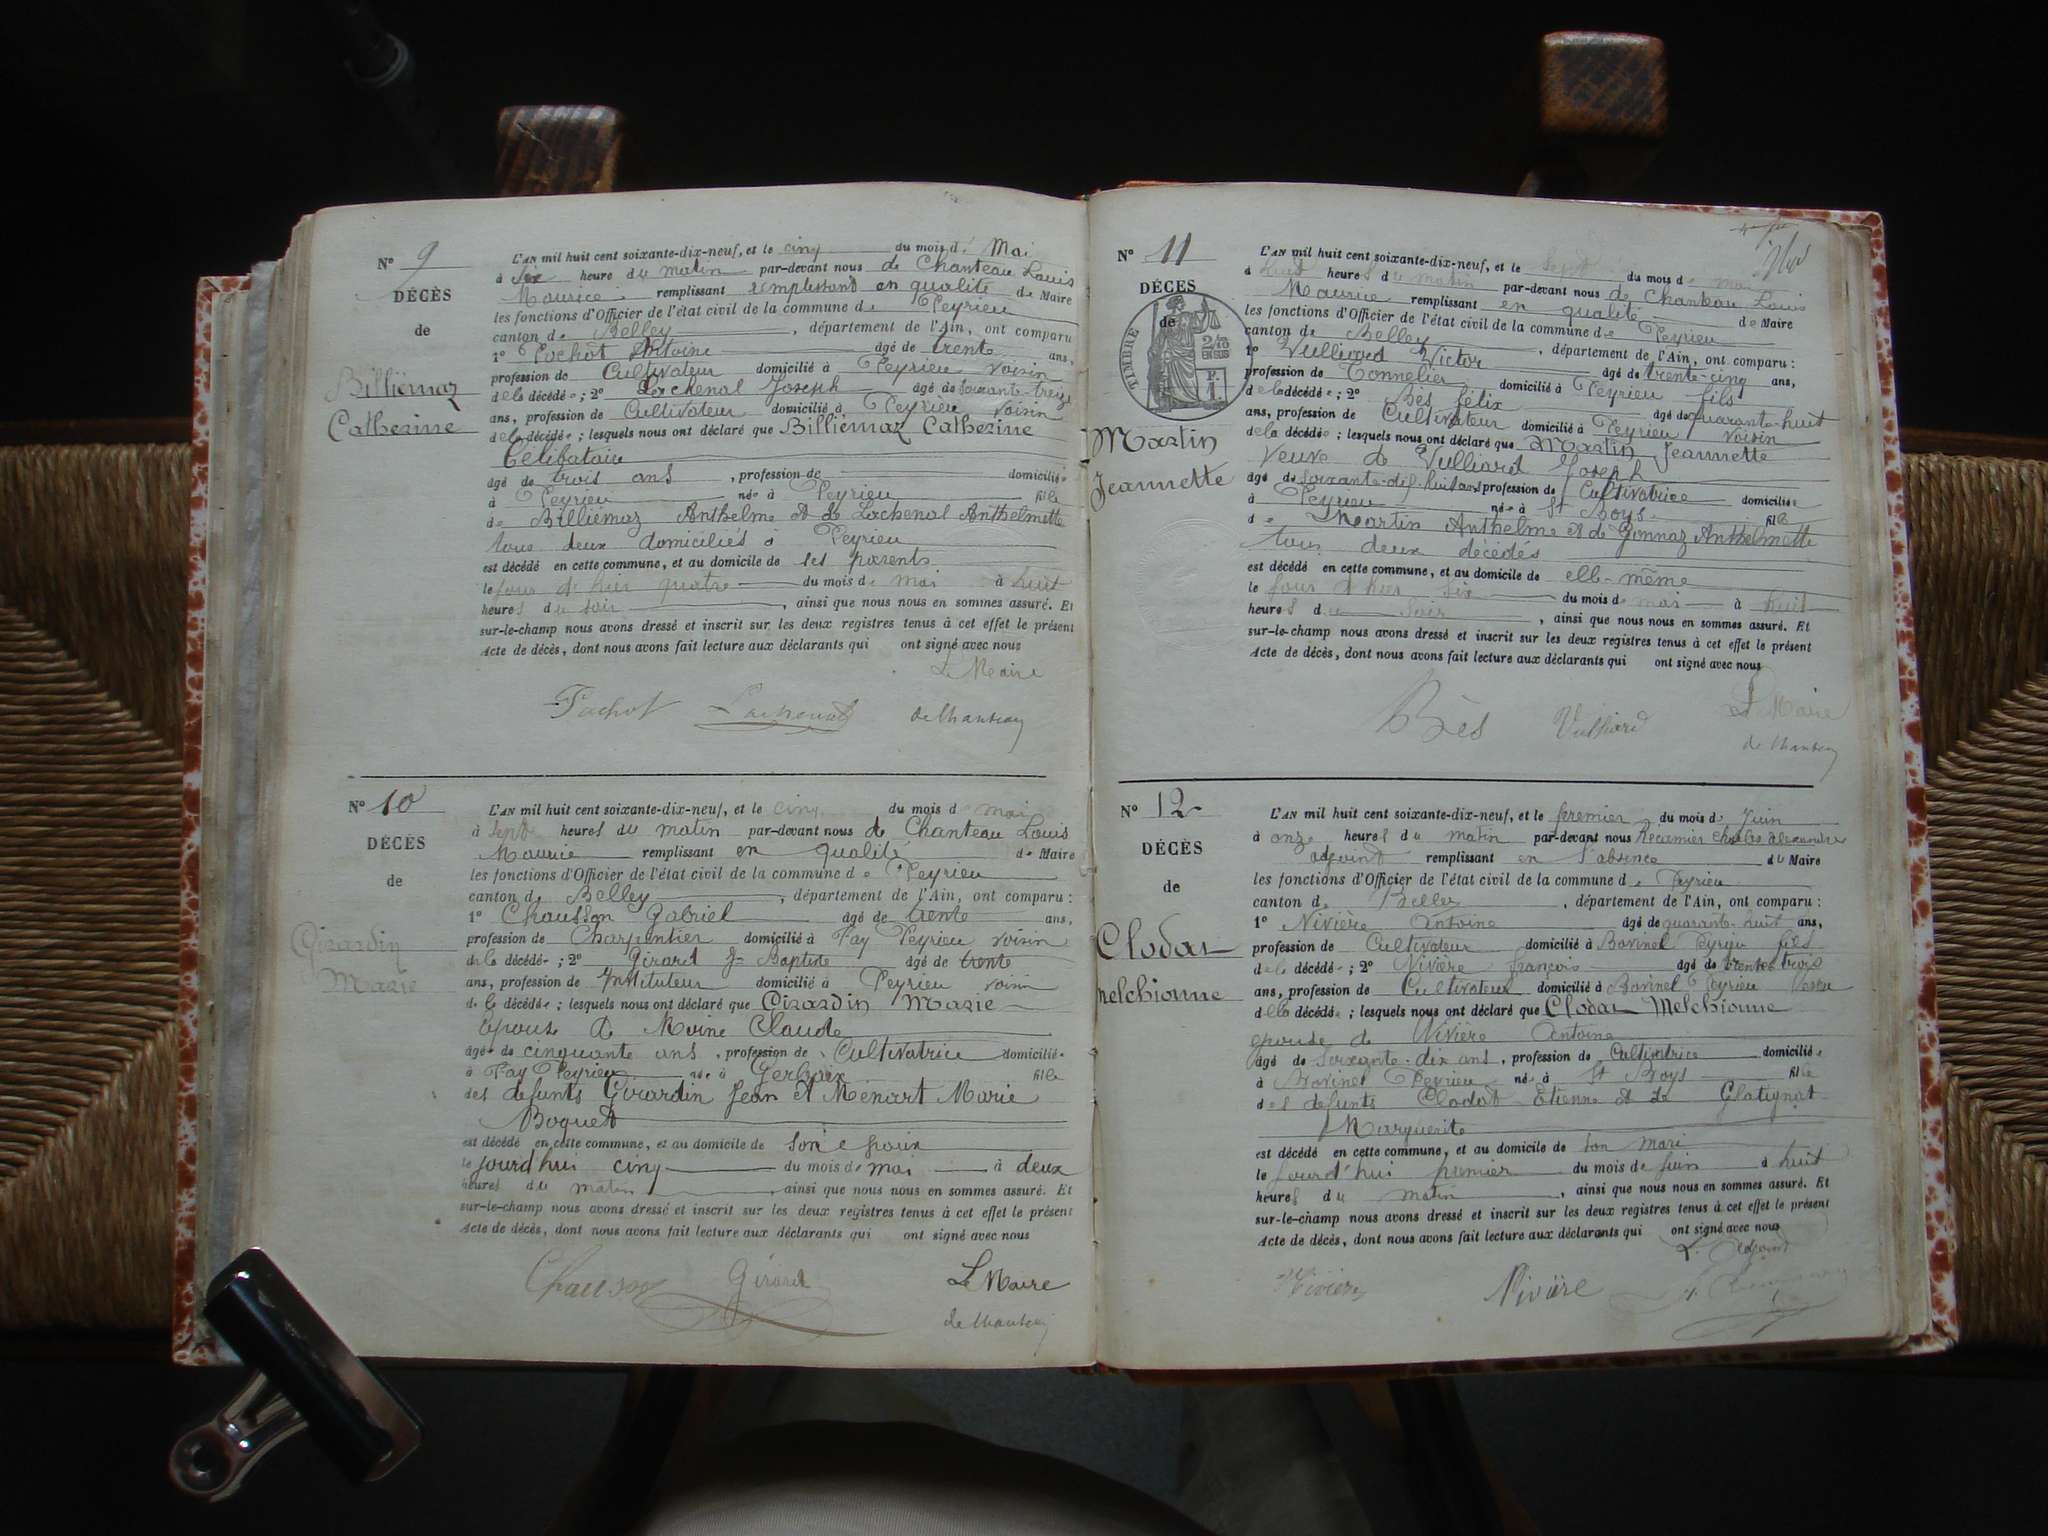 N° 9
DÉCÈS
de
Billiémaz
Catherine
L'AN mil huit cent soixante-dix-neuf, et le cinq du mois de Mai
à six heure du matin par-devant nous de Chanteau Louis
Maurice remplissant remplissant en qualité de Maire
les fonctions d'Officier de l'état civil de la commune de Peyrieu
canton de Belley, département de l'Ain, ont comparu
1° Pochot Antoine agé de trente ans,
profession de Cultivateur domicilié à Peyrieu voisin
de la décédée; 2° Lachenal Joseph agé de soixante-treize
ans, profession de Cultivateur domicilié à Peyrieu voisin
de la décédée; lesquels nous ont déclaré que Billiémaz Catherine
Célibataire
agé de trois ans, profession de domiciliée
à Peyrieu née à Peyrieu fille
de Billiémaz Anthelme et de Lachenal Anthelmette
tous deux domiciliés à Peyrieu
est décédé en cette commune, et au domicile de ses parents
le jour de hier quatre du mois de mai à huit
heures du soir, ainsi que nous nous en sommes assuré. Et
sur-le-champ nous avons dressé et inscrit sur les deux registres tenus à cet effet le présent
Acte de décès, dont nous avons fait lecture aux déclarants qui ont signé avec nous
Le Maire
Pochot Lachenal de Chanteau
N° 10
DÉCÈS
de
Girardin
Marie
L'AN mil huit cent soixante-dix-neuf, et le cinq du mois de mai
à sept heures du matin par-devant nous de Chanteau Louis
Maurice remplissant en qualité de Maire
les fonctions d'Officier de l'état civil de la commune de Peyrieu
canton de Belley, département de l'Ain, ont comparu :
1° Chausson Gabriel agé de trente ans,
profession de Charpentier domicilié à Fay Peyrieu voisin
de la décédée; 2° Girard Jn Baptiste agé de trente
ans, profession de Instituteur domicilié à Peyrieu voisin
de la décédée; lesquels nous ont déclaré que Girardin Marie
épouse de Moine Claude
agée de cinquante ans, profession de Cultivatrice domiciliée
à Fay Peyrieu née à Gerbaix fille
des defunts Girardin Jean et Menart Marie
Boquet
est décédé en cette commune, et au domicile de son époux
le jourd'hui cinq du mois de mai à deux
heures du matin, ainsi que nous nous en sommes assuré. Et
sur-le-champ nous avons dressé et inscrit sur les deux registres tenus à cet effet le présent
Acte de décès, dont nous avons fait lecture aux déclarants qui ont signé avec nous
Chausson Girard Le Maire
de Chanteau
N° 11
DÉCÈS
de
TIMBRE
2/10
EN SUS
F.
1.
Martin
Jeannette
L'AN mil huit cent soixante-dix-neuf, et le sept du mois de mai
à huit heures du matin par-devant nous de Chanteau Louis
Maurice remplissant en qualité de Maire
les fonctions d'Officier de l'état civil de la commune de Peyrieu
canton de Belley, département de l'Ain, ont comparu :
1° Vulliard Victor agé de trente-cinq ans,
profession de Tonnelier domicilié à Peyrieu fils
de la décédée; 2° Bès félix agé de quarante-huit
ans, profession de Cultivateur domicilié à Peyrieu voisin
de la décédée; lesquels nous ont déclaré que Martin Jeannette
Veuve de Vulliard Joseph
agé de soixante-dix-huit ans profession de Cultivatrice domiciliée
à Peyrieu née à St Boys fille
de Martin Anthelme et de Gonnaz Anthelmette
tous deux décédés
est décédé en cette commune, et au domicile de elle-même
le jour d'hier six du mois de mai à huit
heures du soir, ainsi que nous nous en sommes assuré. Et
sur-le-champ nous avons dressé et inscrit sur les deux registres tenus à cet effet le présent
Acte de décès, dont nous avons fait lecture aux déclarants qui ont signé avec nous
Bès Vulliard Le Maire
de Chanteau
N° 12
DÉCÈS
de
Clodat
Melchionne
L'AN mil huit cent soixante-dix-neuf, et le premier du mois de Juin
à onze heures du matin par-devant nous Récamier Charles Alexandre
adjoint remplissant en l'absence du Maire
les fonctions d'Officier de l'état civil de la commune de Peyrieu
canton de Belley, département de l'Ain, ont comparu :
1° Nivière Antoine agé de quarante-huit ans,
profession de Cultivateur domicilié à Bovinel Peyrieu fils
de la décédée; 2° Nivière françois agé de trente trois
ans, profession de Cultivateur domicilié à Bovinel Peyrieu
de la décédée; lesquels nous ont déclaré que Clodat Melchionne
épouse de Nivière Antoine
agée de soixante-dix ans, profession de Cultivatrice domiciliée
à Bovinel Peyrieu née à St Boys fille
des defunts Clodat Etienne et de Glatignat
Marguerite
est décédé en cette commune, et au domicile de son mari
le jourd'hui premier du mois de juin à huit
heures du matin, ainsi que nous nous en sommes assuré. Et
sur-le-champ nous avons dressé et inscrit sur les deux registres tenus à cet effet le présent
Acte de décès, dont nous avons fait lecture aux déclarants qui ont signé avec nous
L'Adjoint
Nivière Nivière